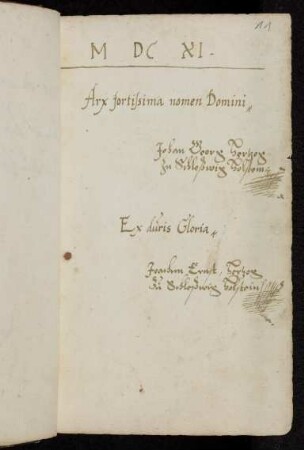 113
M DC XI.
Arx fortissima nomen Domini
Johan Georg Hertzog
zu Schleßwig Holstein
Ex duris Gloria
Joachim Ernst Hertzog
zu Schleßwig Holstein